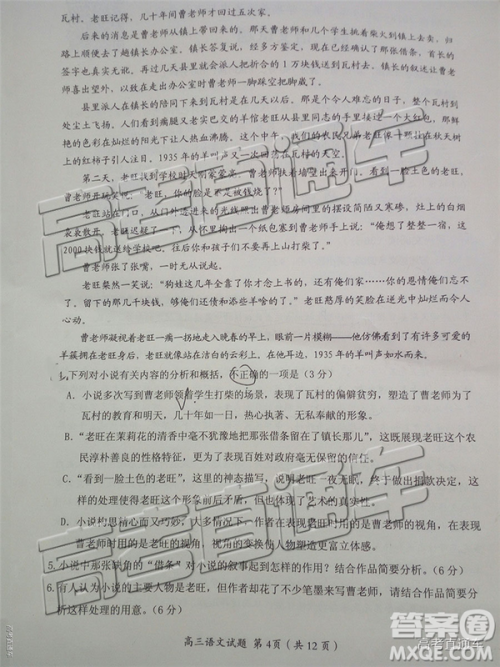 瓦村、老旺记得，几十年间曹老师才回过五次家。
后来的消息是曹老师从镇上带回来的。那天曹老师和几个学生挑着柴火到镇上去卖，归
路上顺便去了趟镇长办公室，镇长答复说，经多方查证，省里确认了那张借条，首长的
签字也真实无讹。再过几天县里就会派人把折合的 1 万块钱送到瓦村去。镇长的叙述让曹老
师喜出望外，以致在走出办公室时曹老师一脚踩空把脚崴了。
县里派人在镇长的陪同下来到瓦村是在几天以后，那是个令人难忘的日子。整个瓦村到
处尘土飞扬。人们看到瘸腿又老实巴交的羊倌老旺从县里同志的手中接过一个大红包，那鲜
艳的色彩在灿烂的阳光下让人热血沸腾。这个中午，我们的农民兄弟老旺像个熟柱在秋天树
上的红柿子引人注目。1935 年的羊叫声又一次回荡在瓦村的天空。
第二天，老旺找到学校时天刚破晓。曹老师扶着墙壁出来，看到一脸土色的老旺，
曹老师开玩笑说：老旺，你不是被钱烧了？
老旺站在门口，借着外面透进来的光线照出曹老师房间里的摆设简陋又寒碜，灶上的烟
袅袅散开。老旺迟疑了一下，从怀里掏出一个纸包塞到曹老师手上说：“俺想了整整一宿，这
2000块钱就送给学校吧。往后你和孩子们不要再上山打柴了。”
曹老师张了张嘴，一时无从说起。
老旺粲然一笑说：“其实俺这几年全靠了你才念上书的，还有俺们家……你的恩情俺们忘不
了。留下的那几千块钱，够俺一家过几年的了。”老旺憨厚的笑脸在逆光中灿烂而令人
心动。
曹老师凝视着老旺一瘸一拐地走入晚春的早上，眼前一片模糊——他仿佛看到了有许多可爱的
羊簇拥在老旺身后，老旺就像站在洁白的云彩上，在他耳边，1935 年的羊叫声如水而来。
4. 下列对小说有关内容的分析和概括，不正确的一项是（3 分）
A．小说多次写到曹老师领着学生打柴的场景，表现了瓦村的偏僻贫穷，塑造了曹老师为
瓦村的教育和明天，几十年如一日，热心执著、无私奉献的形象。
B．“老旺在茉莉花的清香中毫不犹豫地把那张借条留在了镇长那儿”，这既展现老旺的农
民淳朴善良的性格特征，更为了表现了百姓对政府毫无保留的信任。
C．“看到一脸土色的老旺”，这里通过神态描写，说明老旺一夜无眠，终于做出捐款决定，这
样的处理真实可感。
D．小说构思精心而又巧妙，大多情况下，作者在表现老旺时用的是曹老师的视角，在表现
曹老师时用的是老旺的视角，视角的变换使人物塑造更富立体感。
5．小说中那张缺角的“借条”对小说的叙事起到怎样的作用？结合作品简要分析。（6 分）
6．有人认为小说的主要人物是老旺，但作者却花了不少笔墨来写曹老师，请结合作品简要分
析这样处理的用意。（6 分）
高三语文试题 第 4页（共 12 页）
高考直通车
高考直通车
高考直通车
答案圈
MXQE.COM